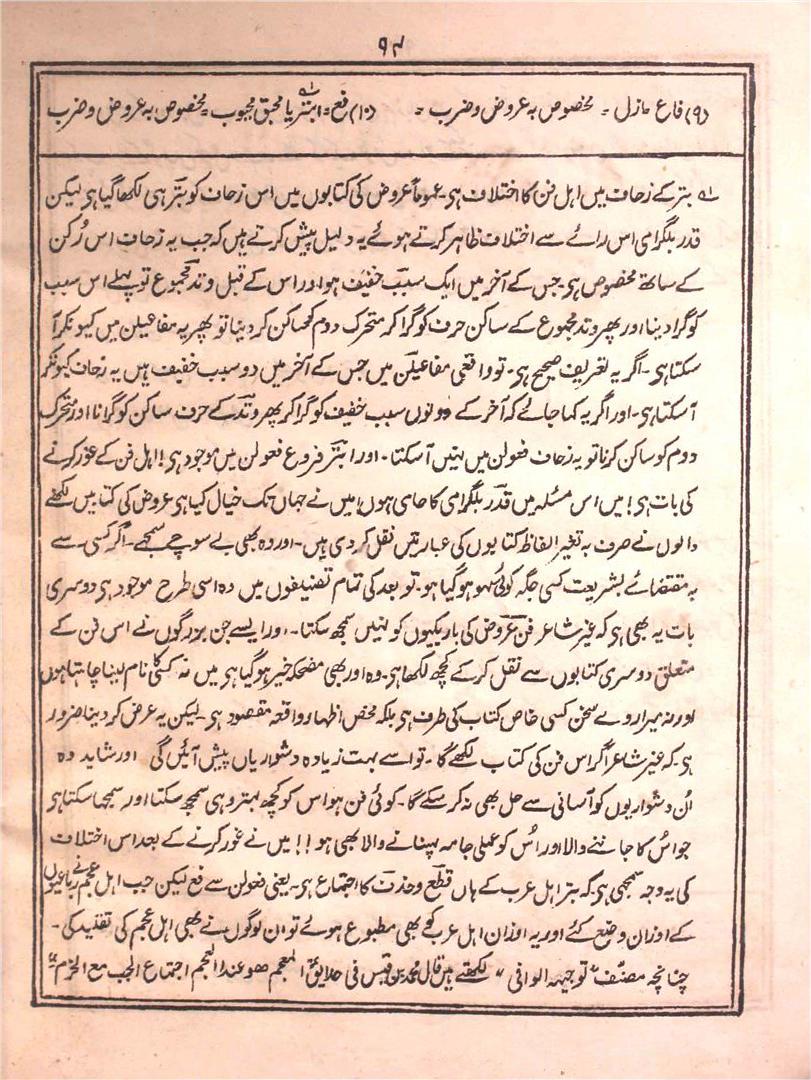 ۹۴
(۹) فاع = ازل = مخصوص بہ عروض و ضرب = (۱۰) فع = ابتر۱؎ یا محبق مجبوب = مخصوص بہ عروض و ضرب
۱؎ بتر کے زحاف میں اہل فن کا اختلاف ہی۔ عموماً عروض کی کتابوں میں اس زحاف کو بتر ہی لکھا گیا ہی لیکن
قدر بلگرامی اس رائے سے اختلاف ظاہر کرتے ہوئے یہ دلیل پیش کرتے ہیں کہ جب یہ زحاف اس رُکن
کے ساتھ مخصوص ہی۔ جس کے آخر میں ایک سبب خفیف ہو اور اس کے قبل وتد مجموع تو پہلے اس سبب
کو گرا دینا اور پھر وتد مجموع کے ساکن حرف کو گرا کر متحرک دوم کو ساکن کر دینا تو پھر یہ مفاعیلن میں کیونکر آ
سکتا ہی۔ اگر یہ تعریف صحیح ہی۔ تو واقعی مفاعیلن میں جس کے آخر میں دو سبب خفیف ہیں یہ زحاف کیونکر
آ سکتا ہی۔ اور اگر یہ کہا جائے کہ آخر کے دونوں سبب خفیف کو گرا کر پھر وتد کے حرف ساکن کو گرانا اور متحرک
دوم کو ساکن کرنا تو یہ زحاف فعولن میں نہیں آ سکتا۔ اور ابتر فروع فعولن میں موجود ہی! اہل فن کے غور کرنے
کی بات ہی! میں اس مسئلہ میں قدر بلگرامی کا حامی ہوں! میں نے جہاں تک خیال کیا ہی عروض کی کتابیں لکھنے
والوں نے صرف بہ تغیر الفاظ کتابوں کی عبارتیں نقل کر دی ہیں۔ اور وہ بھی بے سوچے سمجھے۔ اگر کسی سے
بہ مقتضائے بشریعت کسی جگہ کوئی سہو ہو گیا ہو۔ تو بعد کی تمام تصنیفوں میں وہ اسی طرح موجود ہی دوسری
بات یہ بھی ہی کہ غیر شاعر فن عروض کی باریکیوں کو نہیں سمجھ سکتا۔ اور ایسے جن بزرگوں نے اس فن کے
متعلق دوسری کتابوں سے نقل کر کے کچھ لکھا ہی۔ وہ اور بھی مضحکہ خیز ہو گیا ہی میں نہ کسی کا نام لینا چاہتا ہوں
اور نہ میرا روے سخن کسی خاص کتاب کی طرف ہی بلکہ محض اظہار واقعہ مقصود ہی۔ لیکن یہ عرض کر دینا ضرور
ہی۔ کہ غیر شاعر اگر اس فن کی کتاب لکھے گا۔ تو اسے بہت زیادہ دشواریاں پیش آئیں گی اور شاید وہ
اُن دشواریوں کو آسانی سے حل بھی نہ کر سکے گا۔ کوئی فن ہو اس کو کچھ بہتر وہی سمجھ سکتا اور سمجھا سکتا ہی
جو اُس کا جاننے والا اور اُس کو عملی جامہ پہنانے والا بھی ہو!! میں نے غور کرنے کے بعد اس اختلاف
کی یہ وجہ سمجھی ہی۔ کہ بتر اہل عرب کے ہاں قطع و حذف کا اجتماع ہی۔ یعنی فعولن سے فع لیکن جب اہل عجم نے رباعیوں
کے اوزان وضع کئے اور یہ اوزان اہل عرب کو بھی مطبوع ہوئے تو ان لوگوں نے بھی اہل عجم کی تقلید کی۔
چنانچہ مصنف "توجیہہ الوافی" لکھتے ہیں قال محمد بن قیس فی حدایق المعجم ھو عند العجم اجتماع الجب مع الخرم